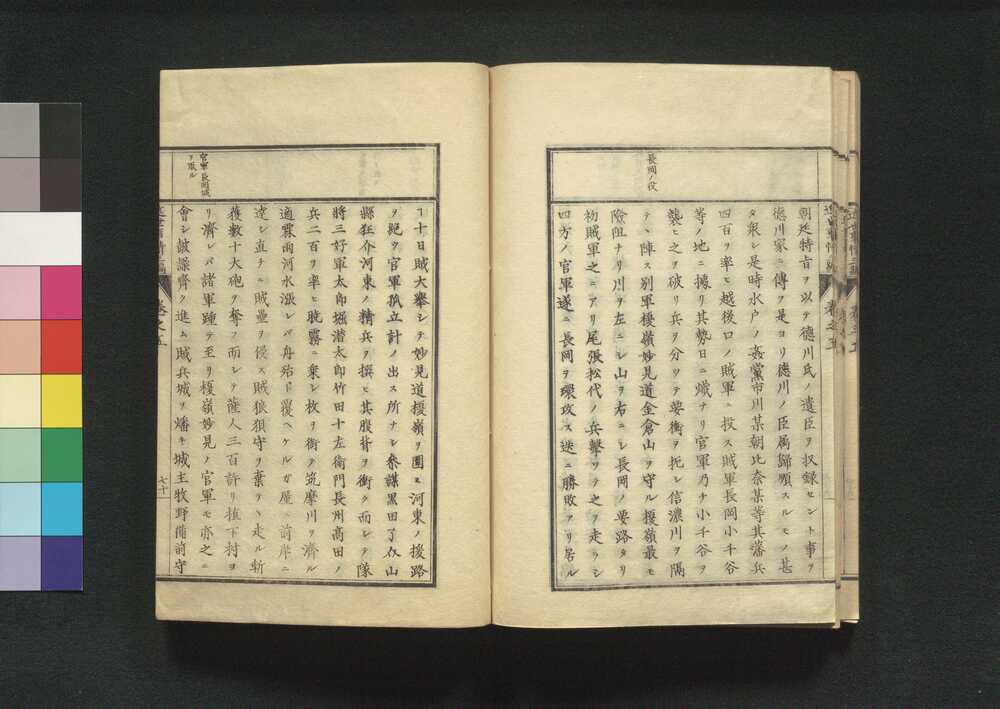 長岡ノ役
朝廷特旨ヲ以テ德川氏ノ遺臣ヲ収録セント事ヲ
德川家ニ傳フ是ヨリ德川ノ臣属歸順スルモノ甚
タ衆シ是時水戸ノ姦黨市川某朝比奈某等其藩兵
四百ヲ率ヒ越後口ノ賊軍ニ投ス賊軍長岡小千谷
等ノ地ニ據リ其勢日ニ熾ナリ官軍乃チ小千谷ヲ
襲ヒ之ヲ破リ兵ヲ分ツテ要衝ヲ扼シ信濃川ヲ隔
テヽ陣ス別軍榎嶺妙見道金倉山ヲ守ル榎嶺最モ
險阻ナリ川ヲ左ニシ山ヲ右ニシ長岡ノ要路タリ
初賊軍之ニアリ尾張松代ノ兵擊ツテ之ヲ走ラシ
四方ノ官軍遂ニ長岡ヲ環攻ス迭ニ勝敗アリ居ル
官軍長岡城
ヲ陷ル
丁十日賊大擧シテ妙見道榎嶺ヲ圍ミ河東ノ援路
ヲ絶ツ官軍孤立計ノ出ス所ナシ叅謀黒田了介山
縣狂介河東ノ精兵ヲ撰ヒ其腹背ヲ衝ク而シテ隊
將三好軍太郎堀潜太郎竹田十左衛門長州高田ノ
兵二百ヲ率ヒ曉霧ニ乗シ枚ヲ銜テ筑摩川ヲ濟ル
適霖雨河水漲レバ舟殆ド覆ヘケルガ屋〻前岸ニ
達シ直チニ賊壘ヲ侵ス賊狼狽守ヲ棄テヽ走ル斬
獲數十大砲ヲ奪フ而シテ薩人三百許リ植下村ヨ
リ濟レバ諸軍踵テ至リ榎嶺妙見ノ官軍モ亦之ニ
會シ皷譟齊ク進ム賊兵城ヲ燔キ城主牧野備前守
六十